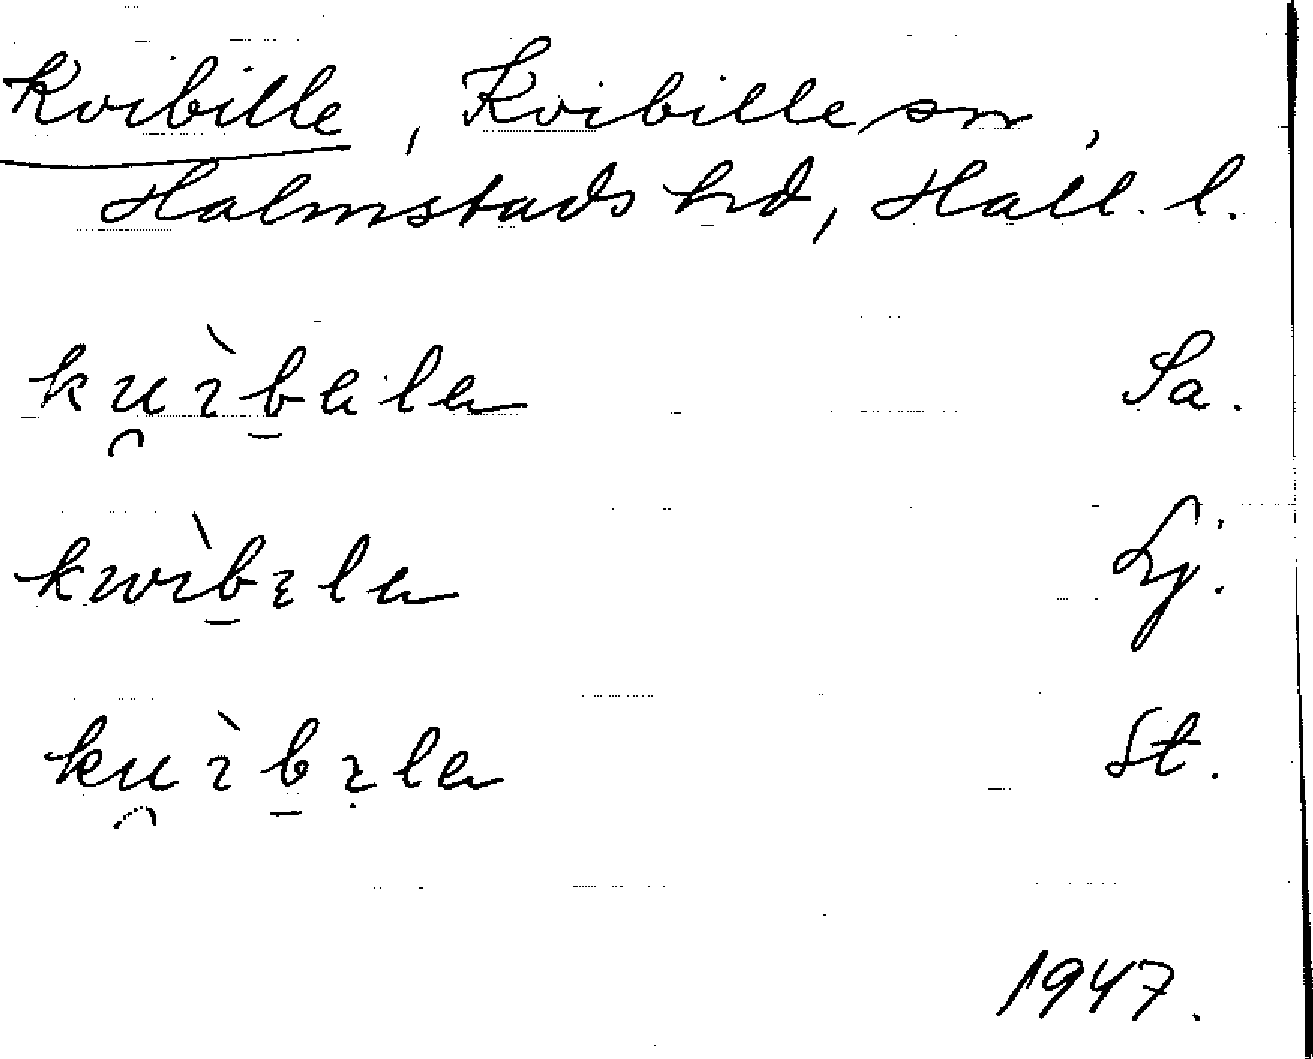 Kvibille, Kvibille sn,
Halmstads hd, Hall. l.
ku̯ìḇɐlɐ Sa.
kwìḇɪlɐ Lj.
ku̯ìḇɪ̣lɐ St.
1947.